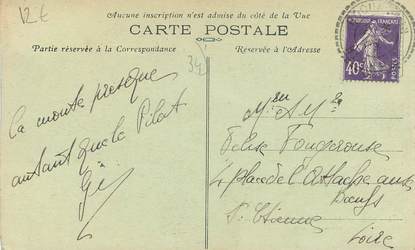 12€
Aucune inscription n'est admise du côté de la Vue
CARTE POSTALE
Partie réservée à la Correspondance
Réservée à l'Adresse
34
REPUBLIQUE FRANCAISE
40c
POSTES
la monte presque
autant que le Pilat
Gé
Felix Fougerouse
4 place de l'Attache aux
Bœufs
St Etienne
Loire